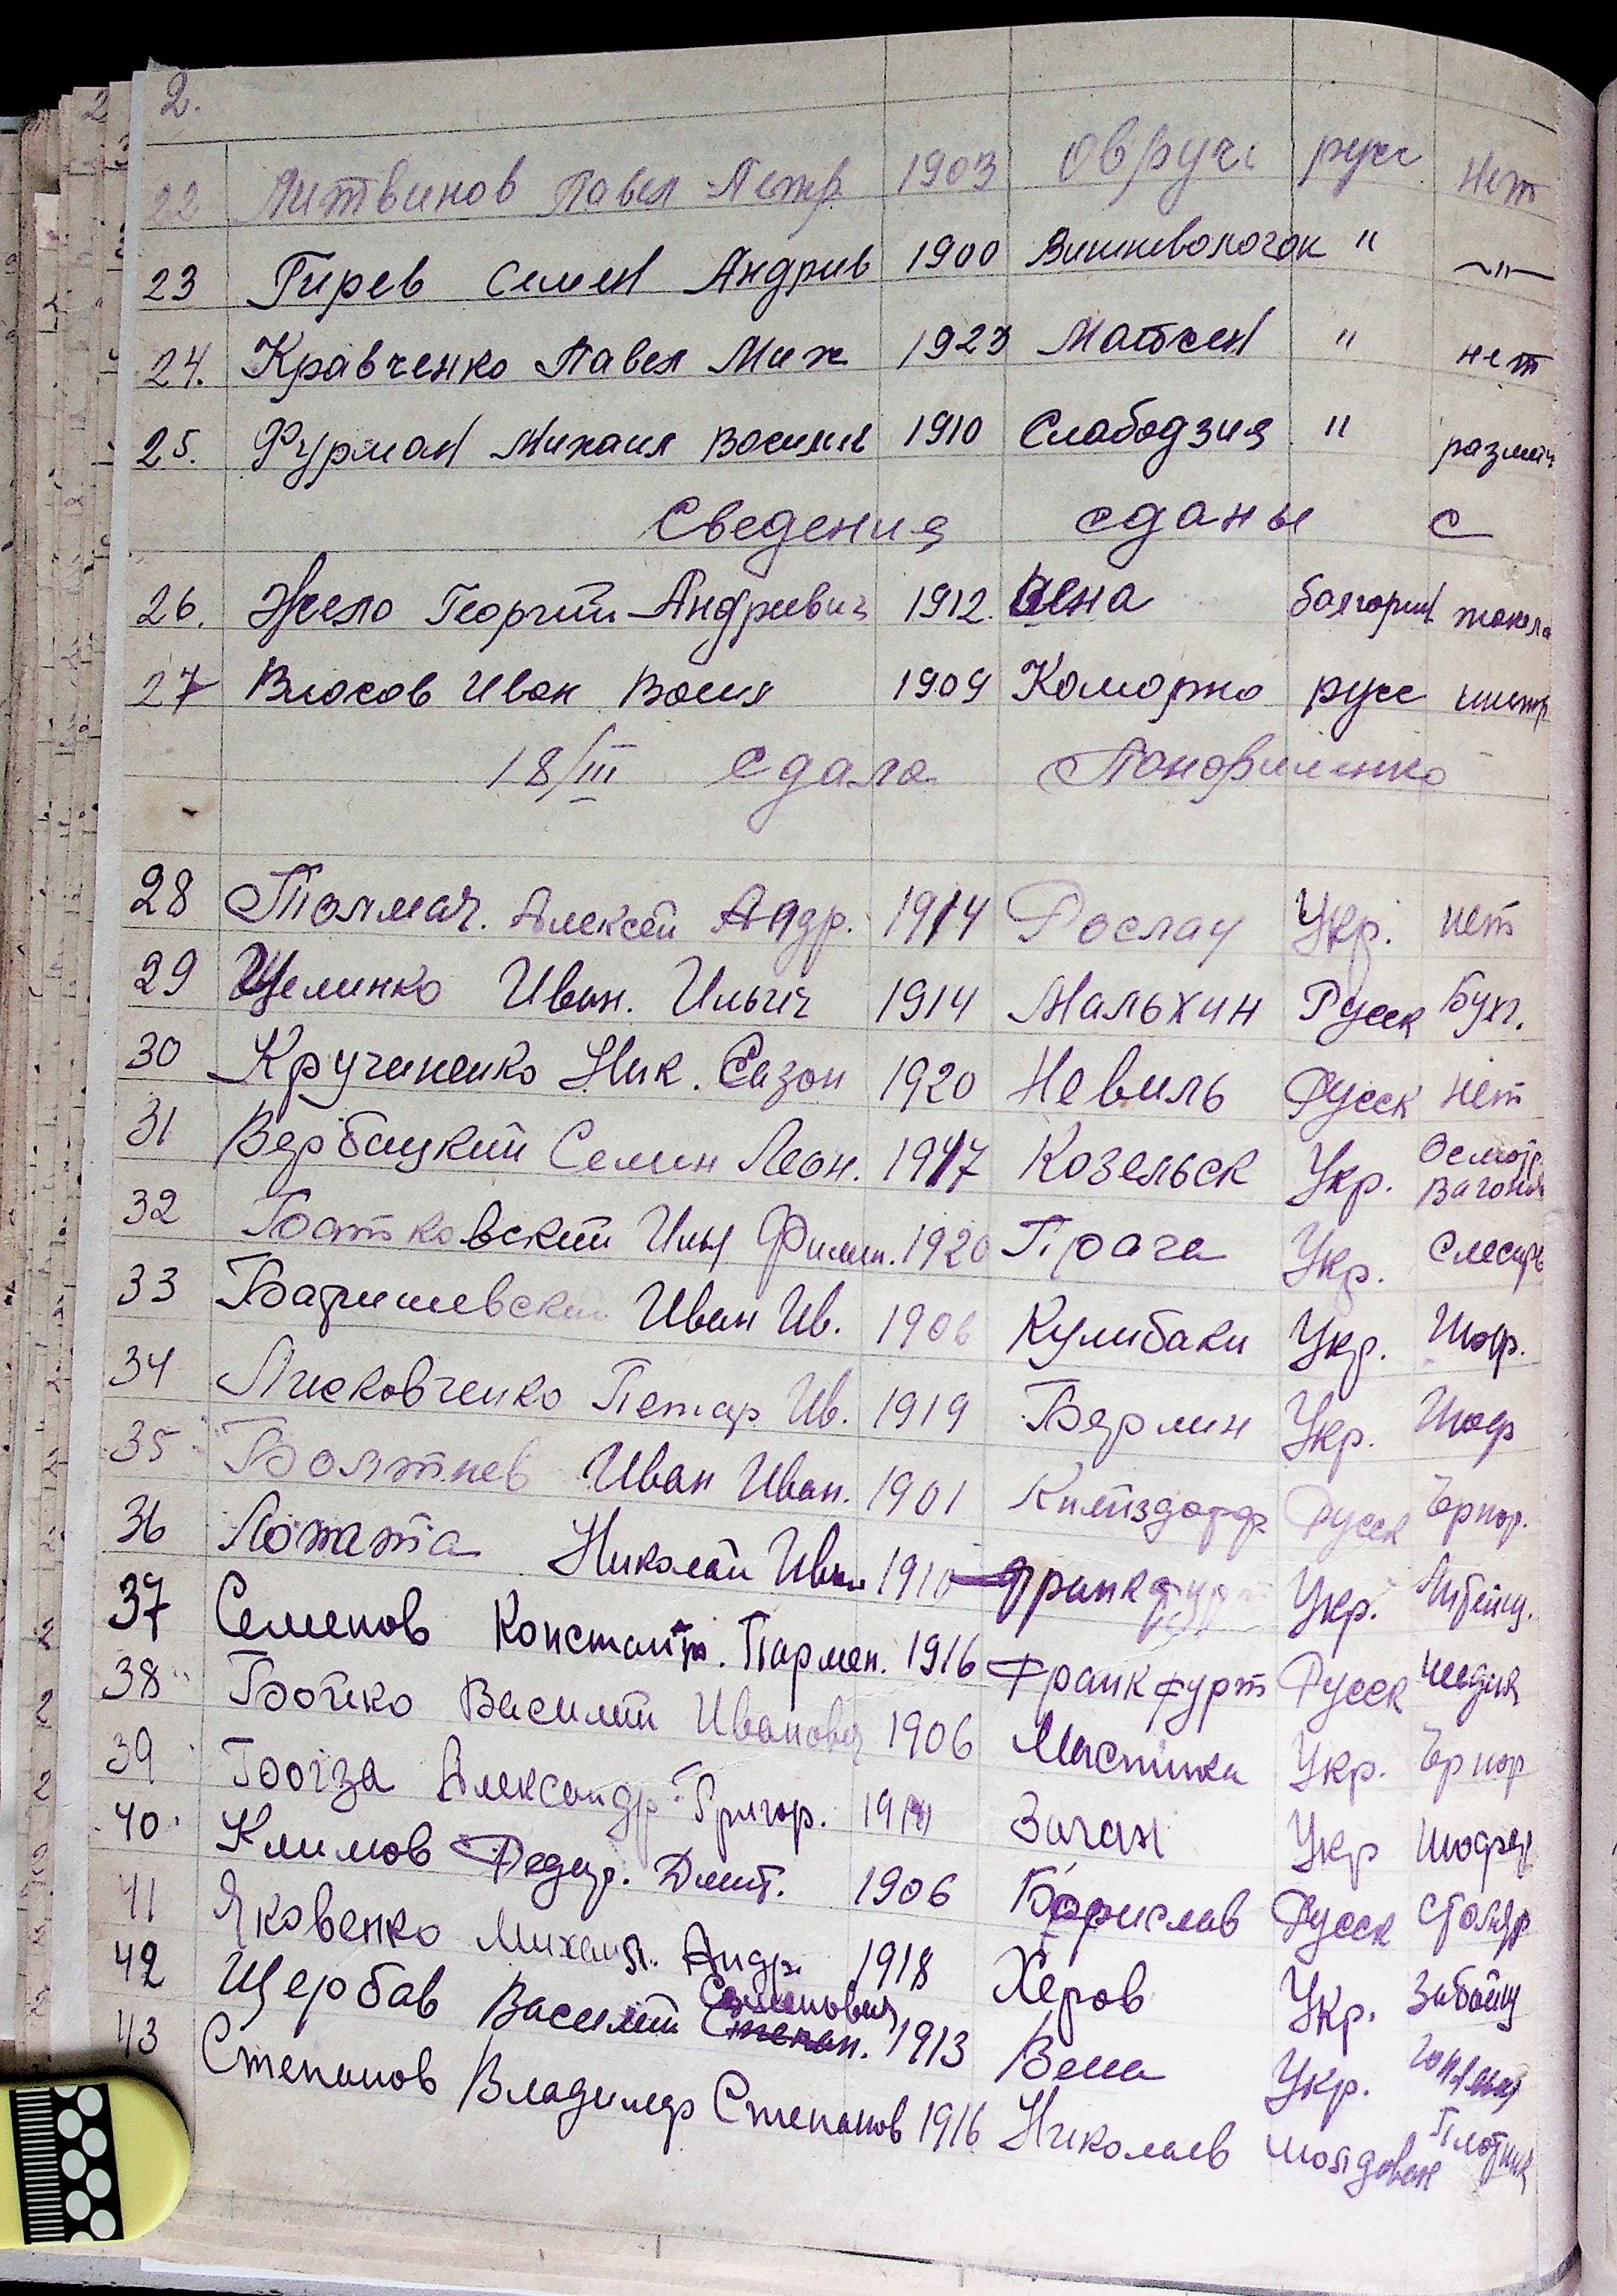 2.
22 Литвинов Павел Петр 1903 Овручи русс Нет
23 Гирев Семен Андрив 1900 Вишневолочок " —"—
24. Кравченко Павел Мих 1923 " нет
25. Фурман Михаил Васили 1910 Слабодзия "
Сведения сданы с
26. Жело Георгий Андреевич 1912. Иена болгарин
27 Власов Иван Васил 1909 Коморно русс
18/III сдала
28 Толмач. Алексей Андр. 1914 Рослау Укр. нет
29 Щелинко Иван. Ильич 1914 Мальхин Русск Бухг.
30 Кручиненко Ник. Сазон 1920 Невиль Русск нет
31 Вербацкий Семен Леон. 1917 Козельск Укр. Осмотр. вагонов
32 Батковский Илья Филип. 1920 Прага Укр. Слесарь
33 Баришевский Иван Ив. 1906 Кулибаки Укр. Шоф.
34 Лисковченко Петар Ив. 1919 Берлин Укр. Шоф
35 Болтнев Иван Иван. 1901 Русск Чернор.
36 Лотата Николай Иван 1910 Франкфурт Укр.
37 Семенов Констант. Пармен. 1916 Франкфурт Русск
38 Бойко Василий Иванович 1906 Укр. Чернор
39 Александр Григор. Заган Укр Шофер
40. Климов Федор. Дмит. 1906 Борислав Русск Столяр
41 Яковенко Михаил. Андр. 1918 Херов Укр. Забойщ
42 Щербав Василий Степан. Семенович 1913 Вена Укр.
43 Степанов Владимер Степанов 1916 Николаев молдован Плотник